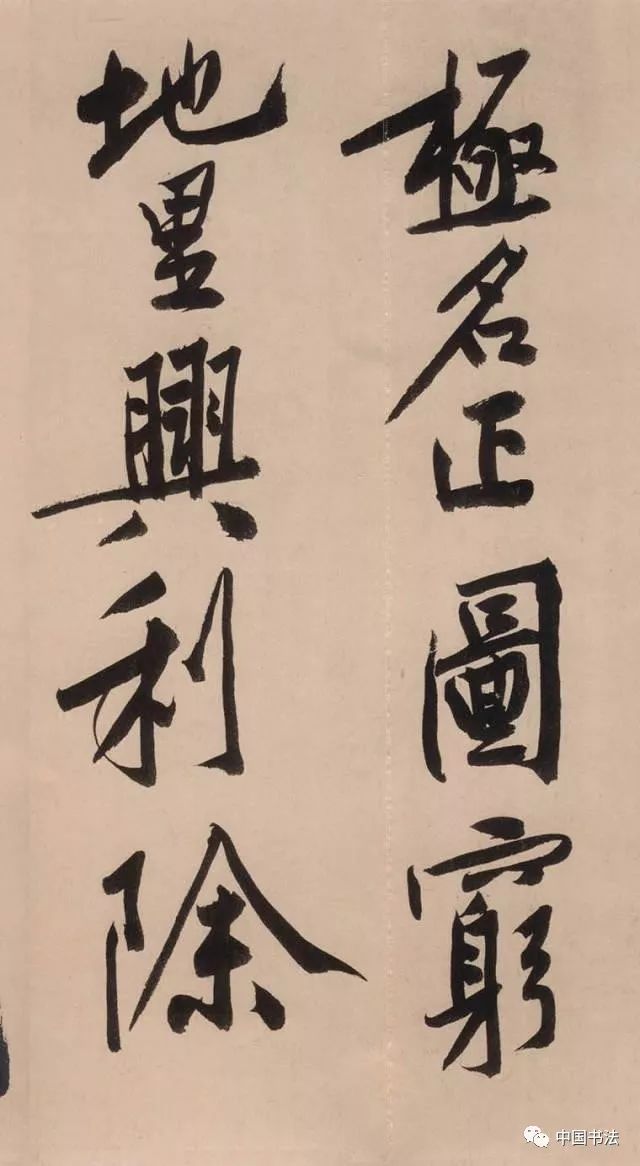 極名正圖窮
地里興利除
中国书法